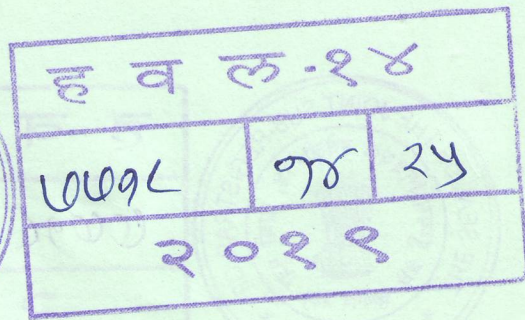 ह व ल-१४
७७१८ १४ २५
२०१९